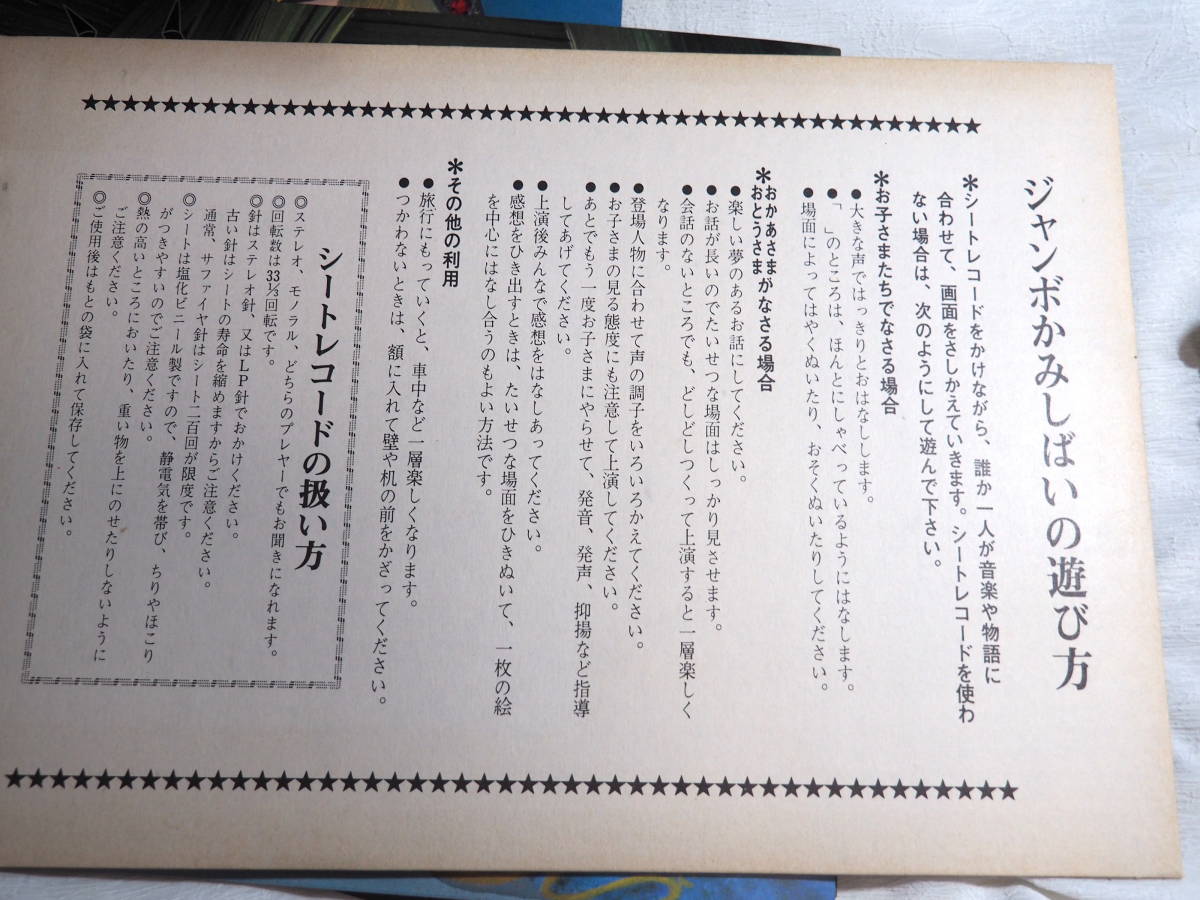 ジャンボかみしばいの遊び方
＊シートレコードをかけながら、誰か一人が音楽や物語に
合わせて、画面をさしかえていきます。シートレコードを使わ
ない場合は、次のようにして遊んで下さい。
＊お子さまたちでなさる場合
●大きな声ではっきりとおはなしします。
●「　」のところは、ほんとにしゃべっているようにはなします。
●場面によってはやくぬいたり、おそくぬいたりしてください。
＊おかあさま
おとうさまがなさる場合
●楽しい夢のあるお話にしてください。
●お話が長いのでたいせつな場面はしっかり見させます。
●会話のないところでも、どしどしつくって上演すると一層楽しく
なります。
●登場人物に合わせて声の調子をいろいろかえてください。
●お子さまの見る態度にも注意して上演してください。
●あとでもう一度お子さまにやらせて、発音、発声、抑揚など指導
してあげてください。
●上演後みんなで感想をはなしあってください。
●感想をひき出すときは、たいせつな場面をひきぬいて、一枚の絵
を中心にはなし合うのもよい方法です。
＊その他の利用
●旅行にもっていくと、車中など一層楽しくなります。
●つかわないときは、額に入れて壁や机の前をかざってください。
シートレコードの扱い方
◎ステレオ、モノラル、どちらのプレヤーでもお聞きになれます。
◎回転数は33⅓回転です。
◎針はステレオ針、又はLP針でおかけください。
古い針はシートの寿命を縮めますからご注意ください。
通常、サファイヤ針はシート二百回が限度です。
◎シートは塩化ビニール製ですので、静電気を帯び、ちりやほこり
がつきやすいのでご注意ください。
◎熱の高いところにおいたり、重い物を上にのせたりしないように
ご注意ください。
◎ご使用後はもとの袋に入れて保存してください。